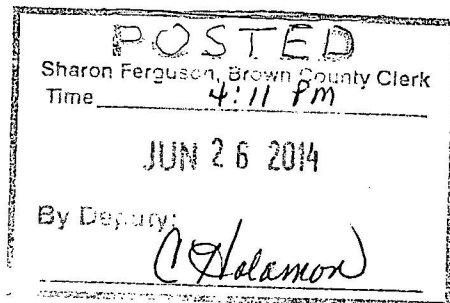 POSTED
Sharon Ferguson, Brown County Clerk
Time 4:11 PM
JUN 26 2014
By Deputy:
C Holamon